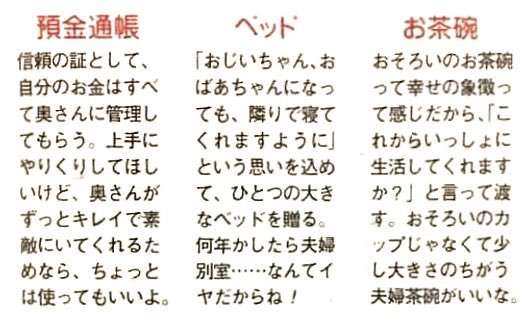 預金通帳
信頼の証として、
自分のお金はすべ
て奥さんに管理し
てもらう。上手に
やりくりしてほし
いけど、奥さんが
ずっとキレイで素
敵にいてくれるた
めなら、ちょっと
は使ってもいいよ。
ベッド
「おじいちゃん、お
ばあちゃんになっ
ても、隣りで寝て
くれますように」
という思いを込め
て、ひとつの大き
なベッドを贈る。
何年かしたら夫婦
別室……なんてイ
ヤだからね！
お茶碗
おそろいのお茶碗
って幸せの象徴っ
て感じだから、「こ
れからいっしょに
生活してくれます
か？」と言って渡
す。おそろいのカ
ップじゃなくて少
し大きさのちがう
夫婦茶碗がいいな。